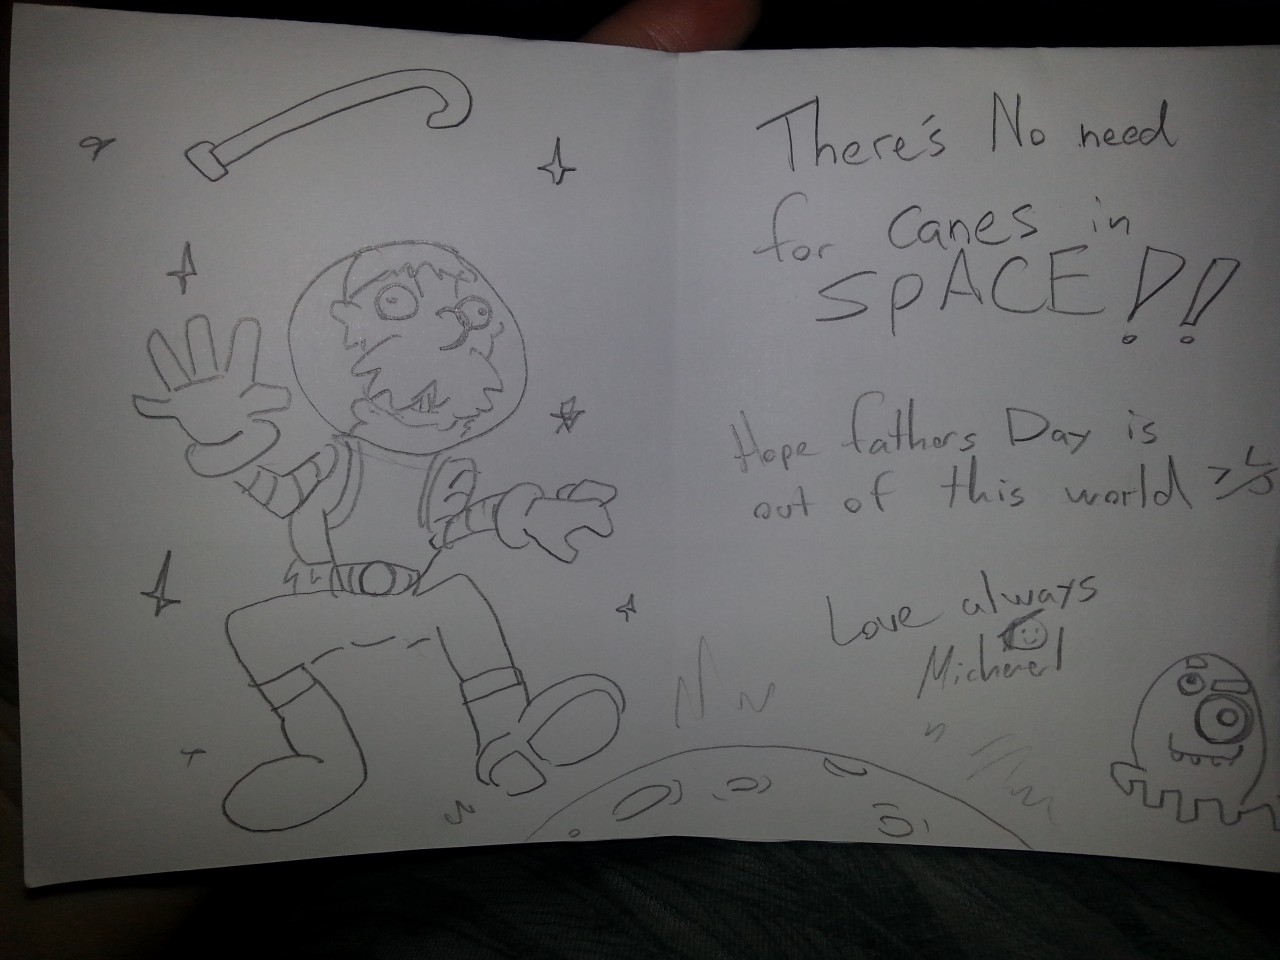 There's No need
for canes in
SPACE!!
Hope fathers Day is
out of this world
Love always
Michael